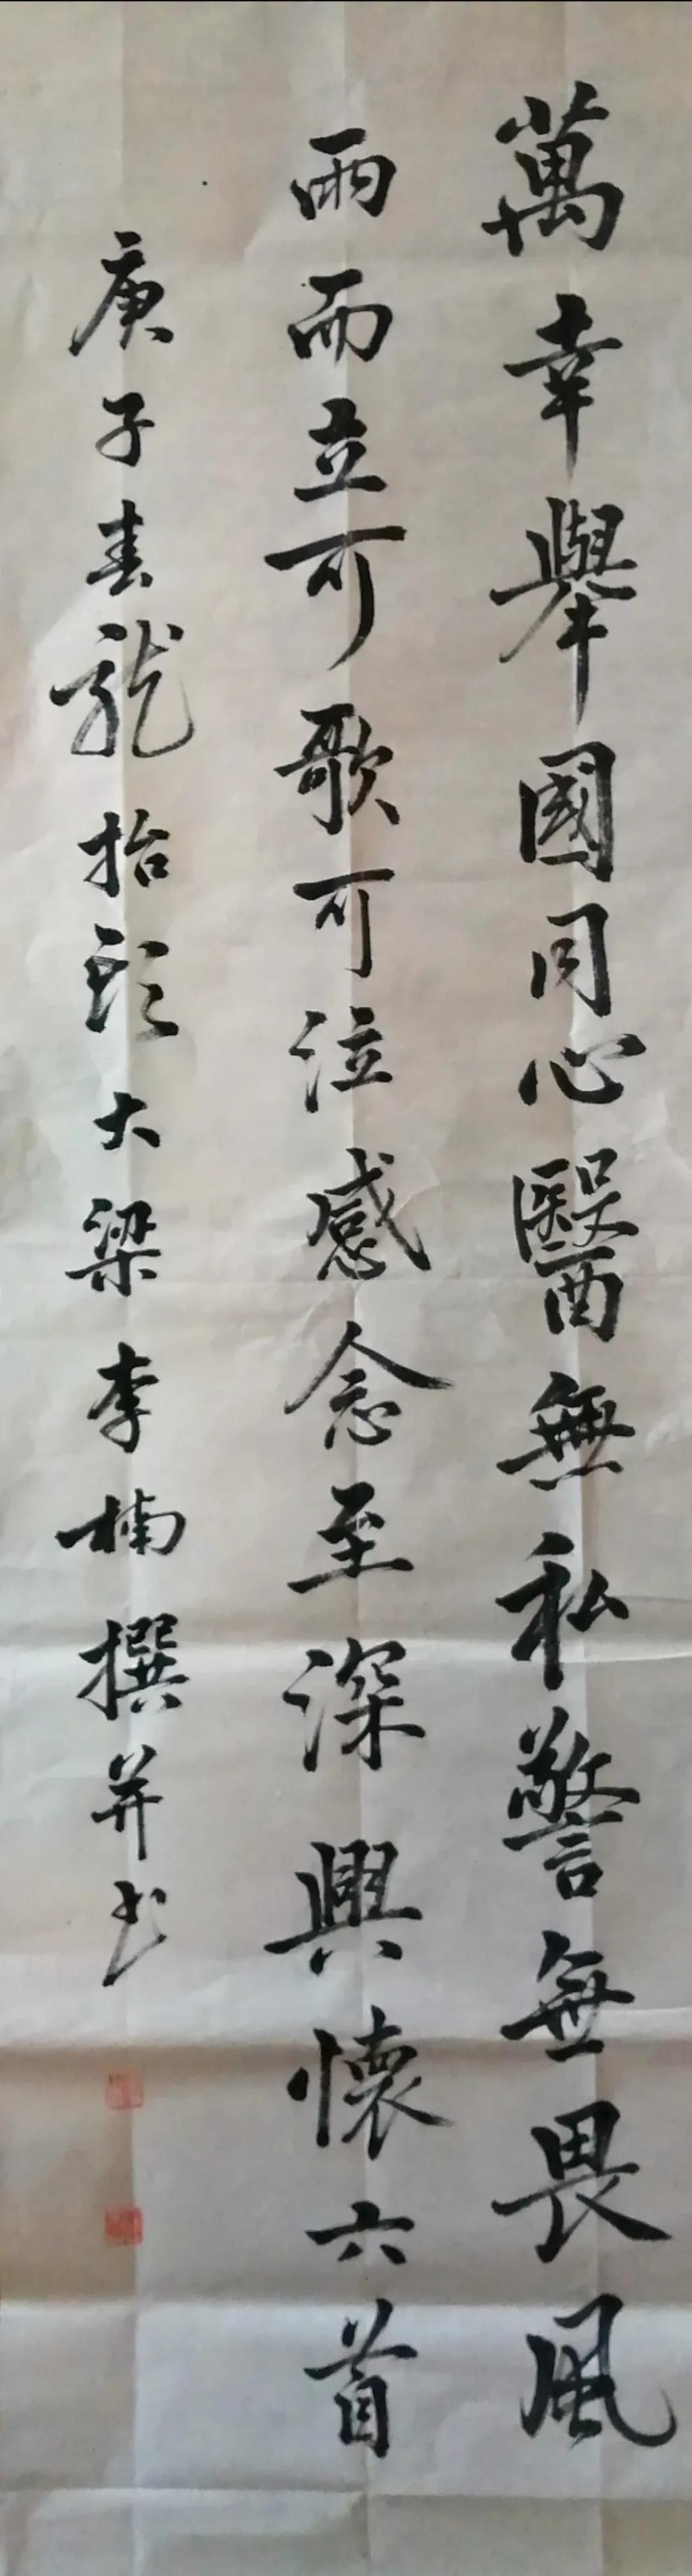 萬幸舉國同心醫無私警無畏風
雨而立可歌可泣感念至深興懷六首
庚子春龍抬頭大梁李楠撰并书